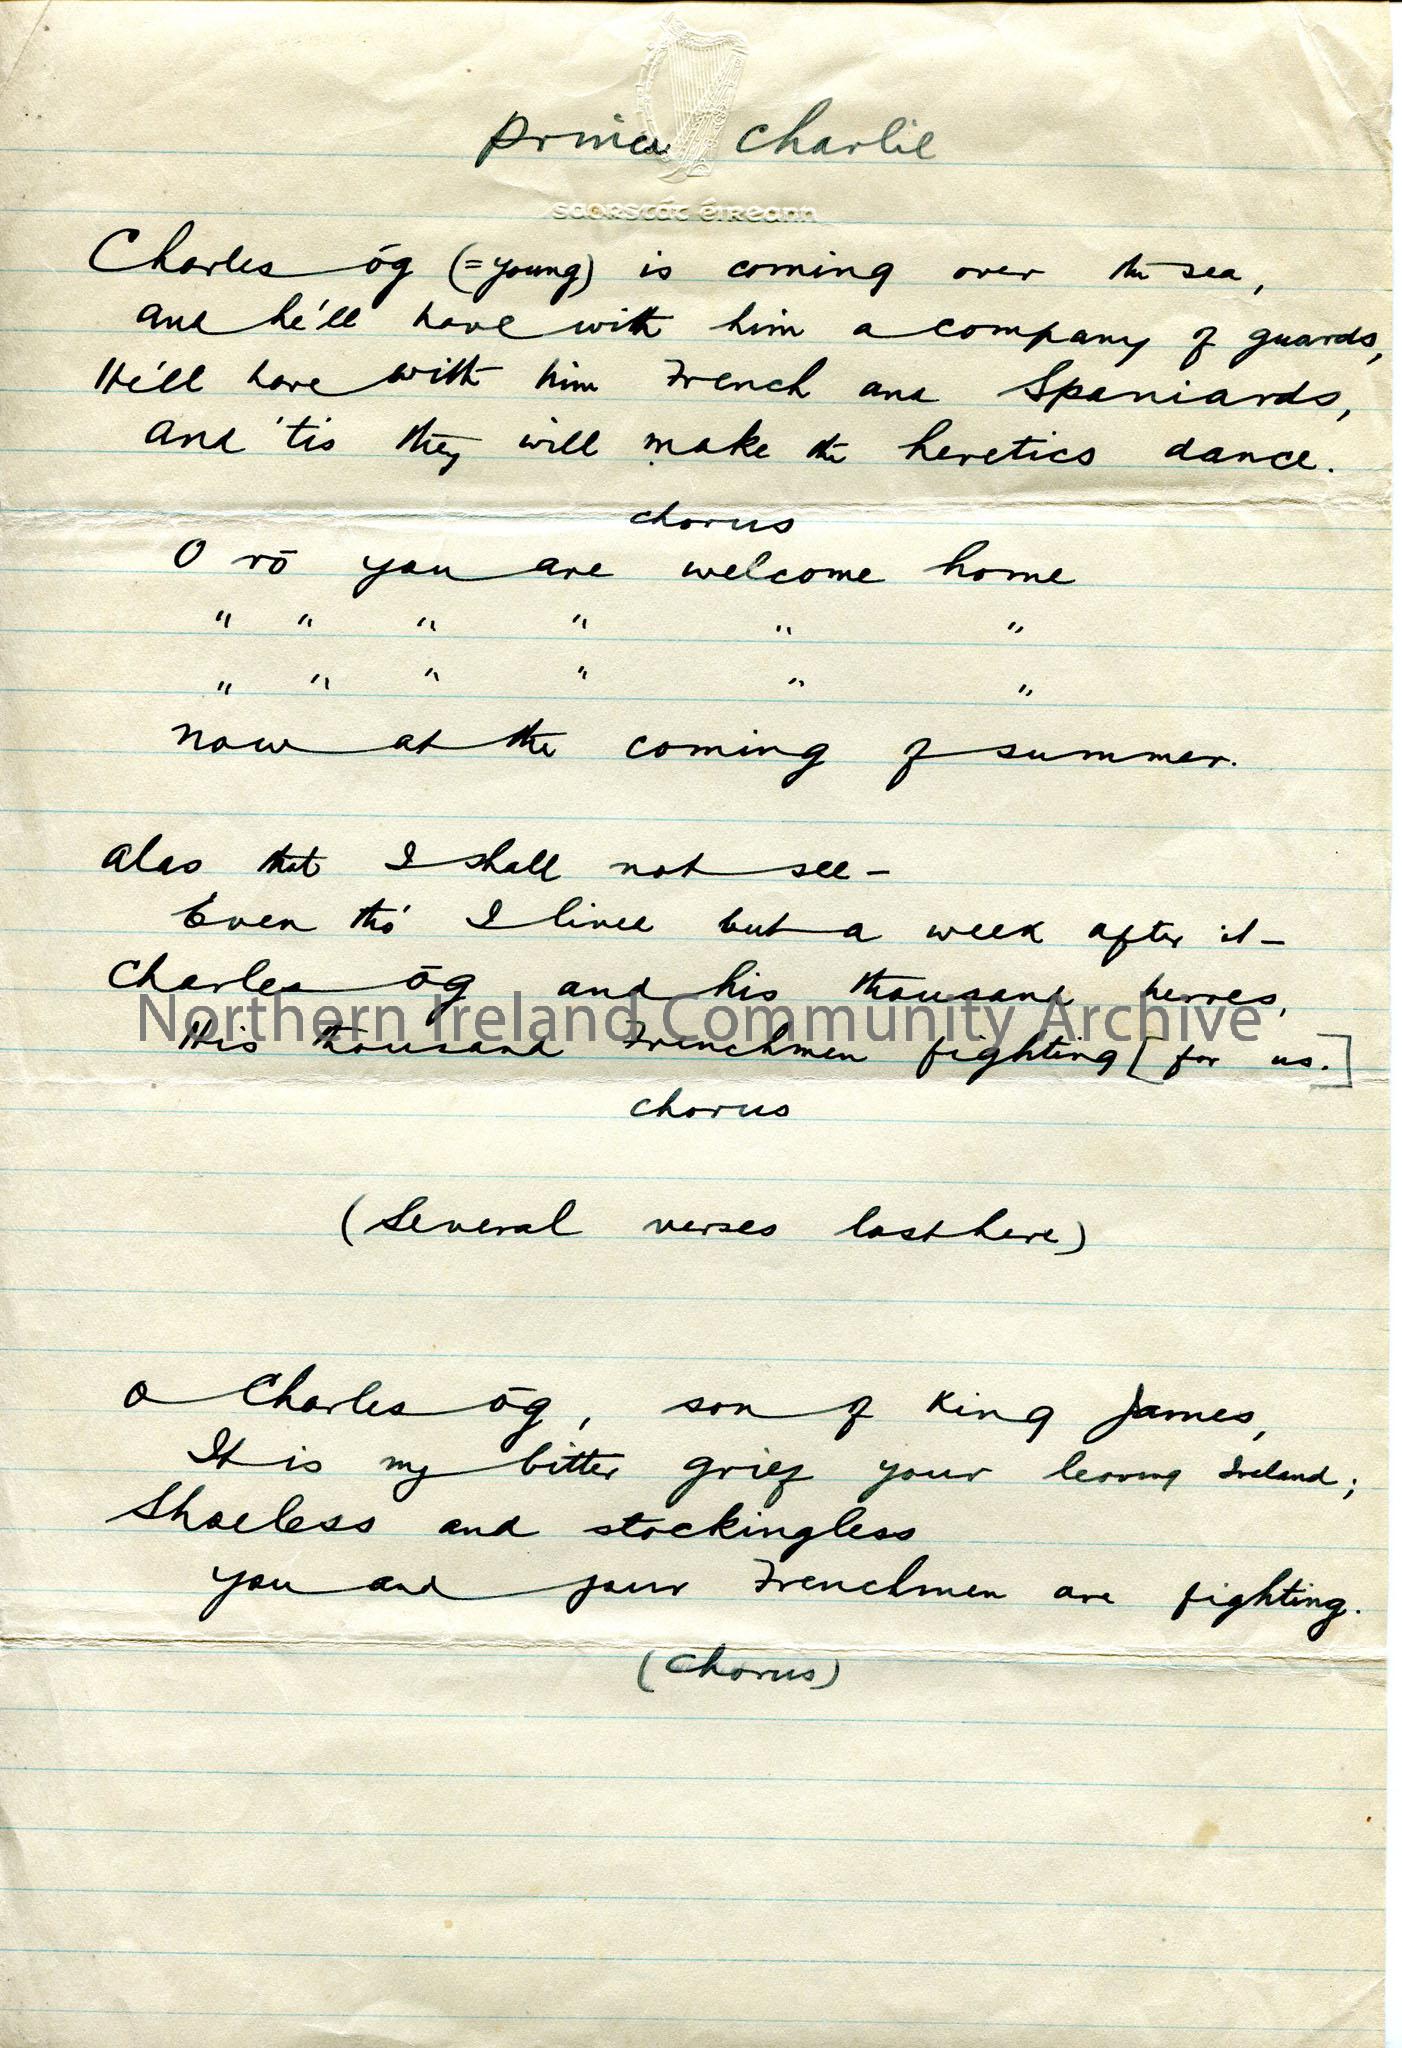 Prince Charlie
SAORSTÁT ÉIREANN
Charles óg (=young) is coming over the sea,
and he'll have with him a company of guards,
He'll have with him French and Spaniards,
And 'tis they will make the heretics dance.
chorus
O ró you are welcome home
" " " " " "
" " " " " "
now at the coming of summer.
alas that I shall not see –
Even tho' I lived but a week after it –
Charles óg and his thousand heroes,
Northern Ireland Community Archive
His thousand Frenchmen fighting [for us.]
chorus
(Several verses lost here)
O Charles óg, son of King James,
It is my bitter grief your leaving Ireland;
Shoeless and stockingless
you and your Frenchmen are fighting.
(Chorus)